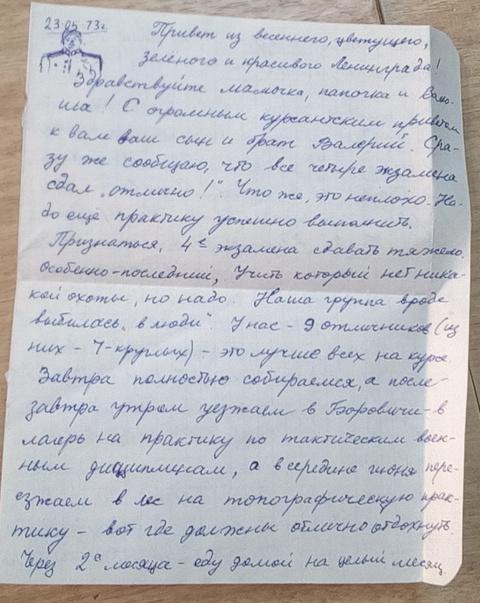 23.05.73г.
Привет из весеннего, цветущего,
зелёного и красивого Ленинграда!
Здравствуйте мамочка, папочка и Воло-
ша! С огромным курсантским приветом
к вам ваш сын и брат Валерий. Сра-
зу же сообщаю, что все четыре экзамена
сдал „отлично!" Что же, это неплохо. На-
до ещё практику успешно выполнить.
Признаться, 4е экзамена сдавать тяжело.
Особенно-последний, учить который нет ника-
кой охоты, но надо. Наша группа вроде
выбилась „в люди". У нас - 9 отличников (из
них - 7-круглых) - это лучше всех на курсе.
Завтра полностью собираемся, а после-
завтра утром уезжаем в Боровичи - в
лагерь на практику по тактическим воен-
ным дисциплинам, а в середине июня пере-
езжаем в лес на топографическую прак-
тику - вот где должны отлично отдохнуть.
Через 2а месяца - еду домой на целый месяц.